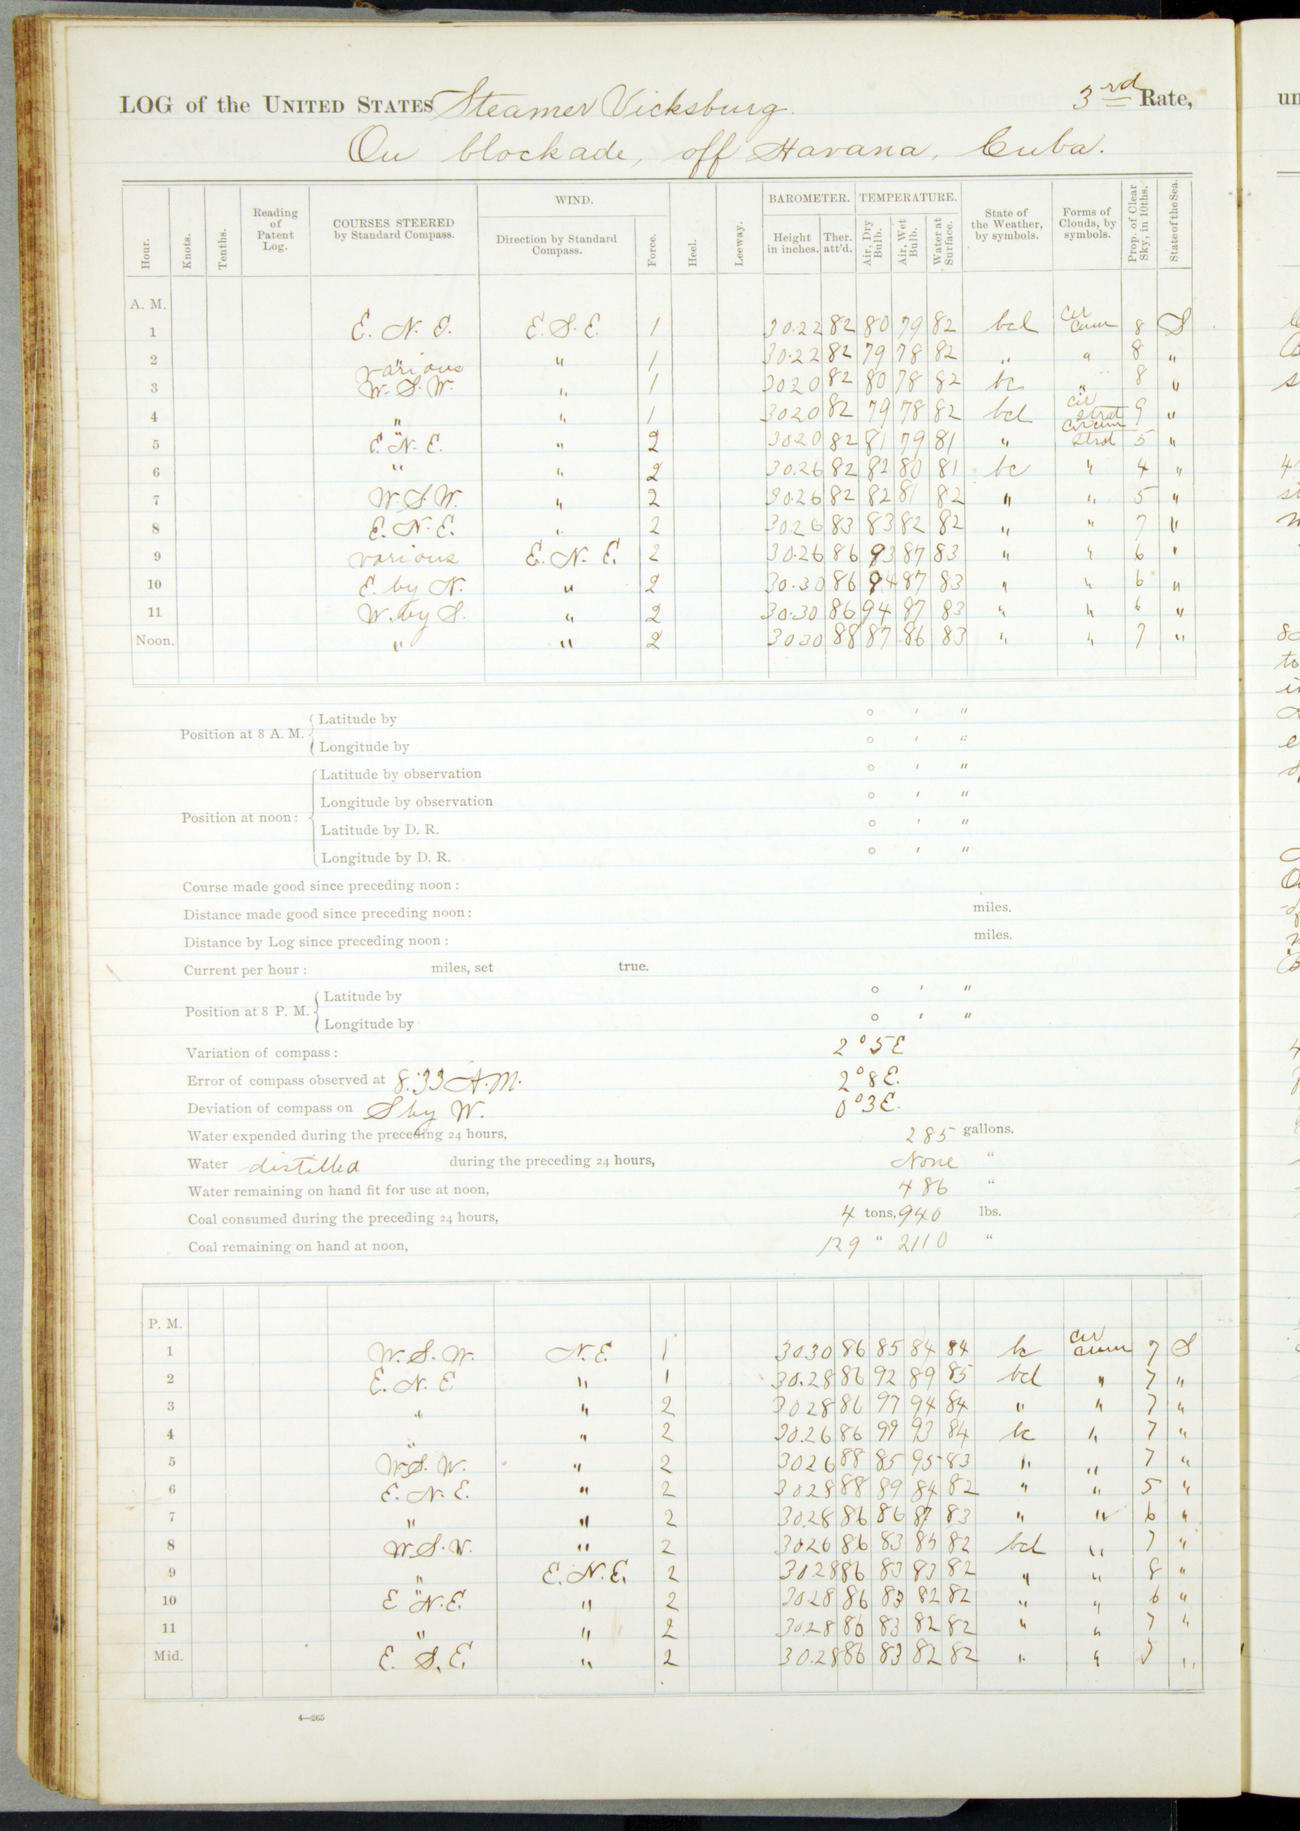 LOG of the UNITED STATES Steamer Vicksburg. 3rd Rate,
On blockade, off Havana, Cuba.
Hour. Knots. Tenths. Reading of Patent Log. COURSES STEERED by Standard Compass. WIND. Direction by Standard Compass. Force. Heel. Leeway. BAROMETER. Height in inches. Ther. att'd. TEMPERATURE. Air, Dry Bulb. Air, Wet Bulb. Water at Surface. State of the Weather, by symbols. Forms of Clouds, by symbols. Prop. of Clear Sky, in 10ths. State of the Sea.
A. M.
1 E. N. E. E. S. E. 1 30.22 82 80 79 82 bcl cir cum 8 S
2 " various " 1 30.22 82 79 78 82 " " 8 "
3 W. S. W. " 1 3020 82 80 78 82 bc " 8 "
4 " " 1 3020 82 79 78 82 bcl cir strat 9 "
5 E. N. E. " 2 3020 82 81 79 81 " cir cum strat 5 "
6 " " 2 30.26 82 82 80 81 bc " 4 "
7 W. S. W. " 2 30.26 82 82 81 82 " " 5 "
8 E. N. E. " 2 30.26 83 83 82 82 " " 7 "
9 various E. N. E. 2 30.26 86 93 87 83 " " 6 "
10 E. by N. " 2 30.30 86 94 87 83 " " 6 "
11 W. by S. " 2 30.30 86 94 87 83 " " 6 "
Noon. " " 2 3030 88 87 86 83 " " 7 "
Position at 8 A. M. Latitude by ° ' "
Longitude by ° ' "
Position at noon: Latitude by observation ° ' "
Longitude by observation ° ' "
Latitude by D. R. ° ' "
Longitude by D. R. ° ' "
Course made good since preceding noon:
Distance made good since preceding noon: miles.
Distance by Log since preceding noon: miles.
Current per hour: miles, set true.
Position at 8 P. M. Latitude by ° ' "
Longitude by ° ' "
Variation of compass: 2°5E
Error of compass observed at 8:33 A.M. 2°8E.
Deviation of compass on S by W. 0°3E.
Water expended during the preceding 24 hours, 285 gallons.
Water distilled during the preceding 24 hours, None "
Water remaining on hand fit for use at noon, 486 "
Coal consumed during the preceding 24 hours, 4 tons, 940 lbs.
Coal remaining on hand at noon, 129 " 2110 "
P. M.
1 W. S. W. N. E. 1 3030 86 85 84 84 bc cir cum 7 S
2 E. N. E " 1 30.28 86 92 89 85 bcl " 7 "
3 " " 2 3028 86 97 94 84 " " 7 "
4 " " 2 30.26 86 99 93 84 bc " 7 "
5 W. S. W. " 2 3026 88 85 95 83 " " 7 "
6 E. N. E. " 2 3028 88 89 84 82 " " 5 "
7 " " 2 30.28 86 86 87 83 " " 6 "
8 W. S. W. " 2 3026 86 83 85 82 bcl " 7 "
9 " E. N. E. 2 3028 86 83 83 82 " " 8 "
10 E. N. E. " 2 3028 86 83 82 82 " " 6 "
11 " " 2 3028 86 83 82 82 " " 7 "
Mid. E. S. E. " 2 30.28 86 83 82 82 " " 5 "
4—265